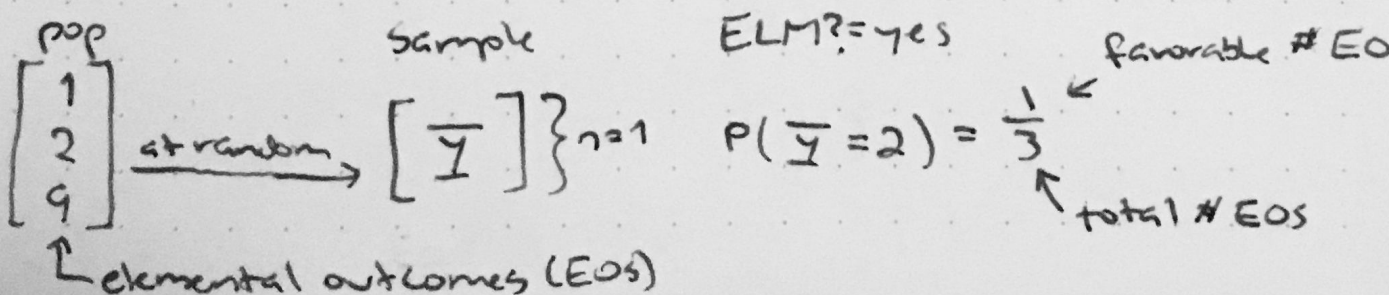 pop
sample
ELM?=yes
favorable # EO
[1
2
9]
at random
[Y] } n=1
P(Y=2) = 1/3
total # EOS
elemental outcomes (EOS)